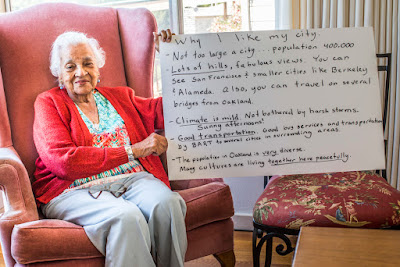 Why I like my city.
Not too large a city... population 400,000
Lots of hills, fabulous views. You can
see San Francisco & smaller cities like Berkeley
& Alameda. Also, you can travel on several
bridges from Oakland.
- Climate is mild. Not bothered by harsh storms.
Sunny afternoons!
- Good transportation. Good bus services and transportation
by BART to several cities in surrounding areas.
- The population in Oakland is very diverse.
Many cultures are living together here peacefully.